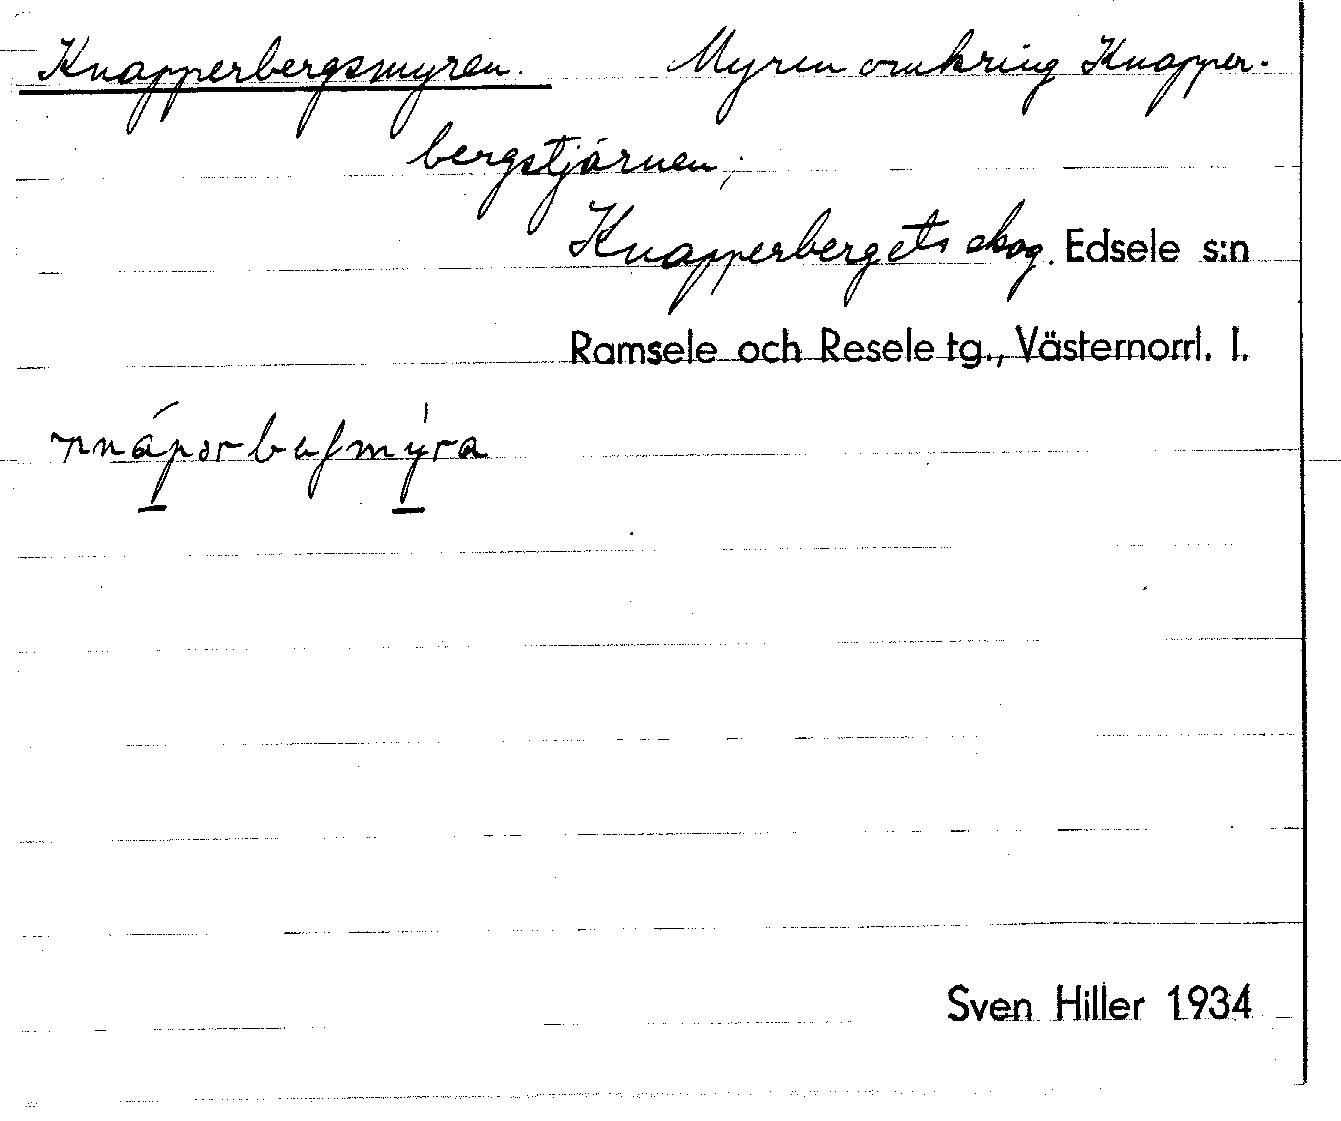 Knapperbergsmyren. Myren omkring Knapper-
bergstjärnen;
Knapperbergets skog. Edsele s:n
Ramsele och Resele tg., Västernorrl. l.
Sven Hiller 1934